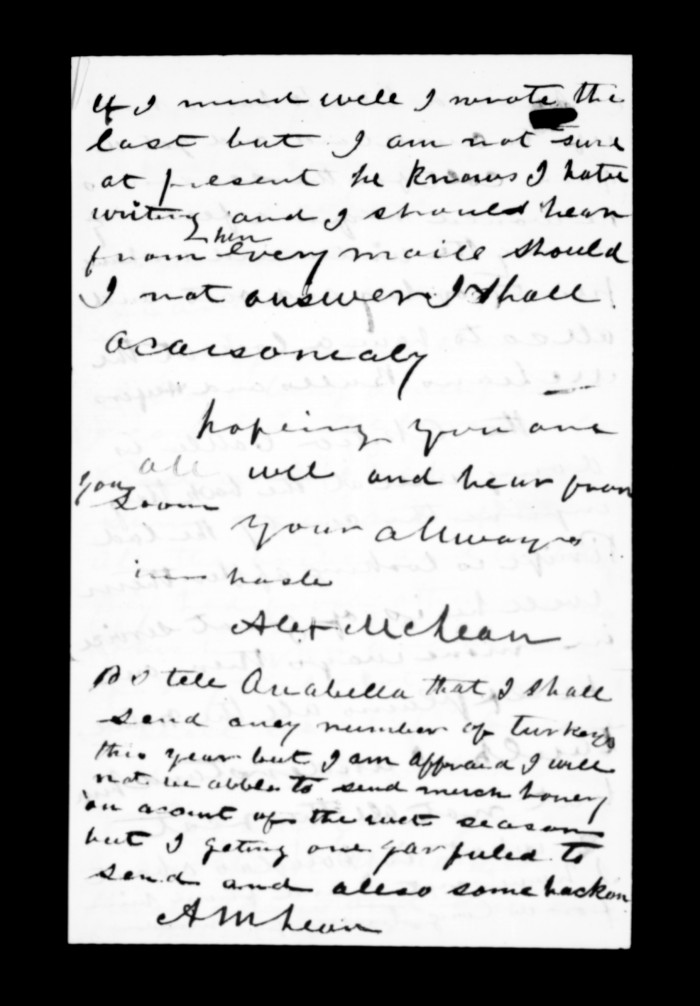 If I mind well I wrote the
last but I am not sure
at present he knows I hate
writing and I should hear
from him every maile should
I not answer I shall
ocaisonialy
hopeing you are
all well and hear from
you soon
your allways
in haste
Alex McLean
PS tell Anabella that I shall
send aney number of turkeys
this year but I am affraid I will
not be abble to send much honey
on acount of the wet season
but I geting one jar filled to
send and allso some backon
A McLean